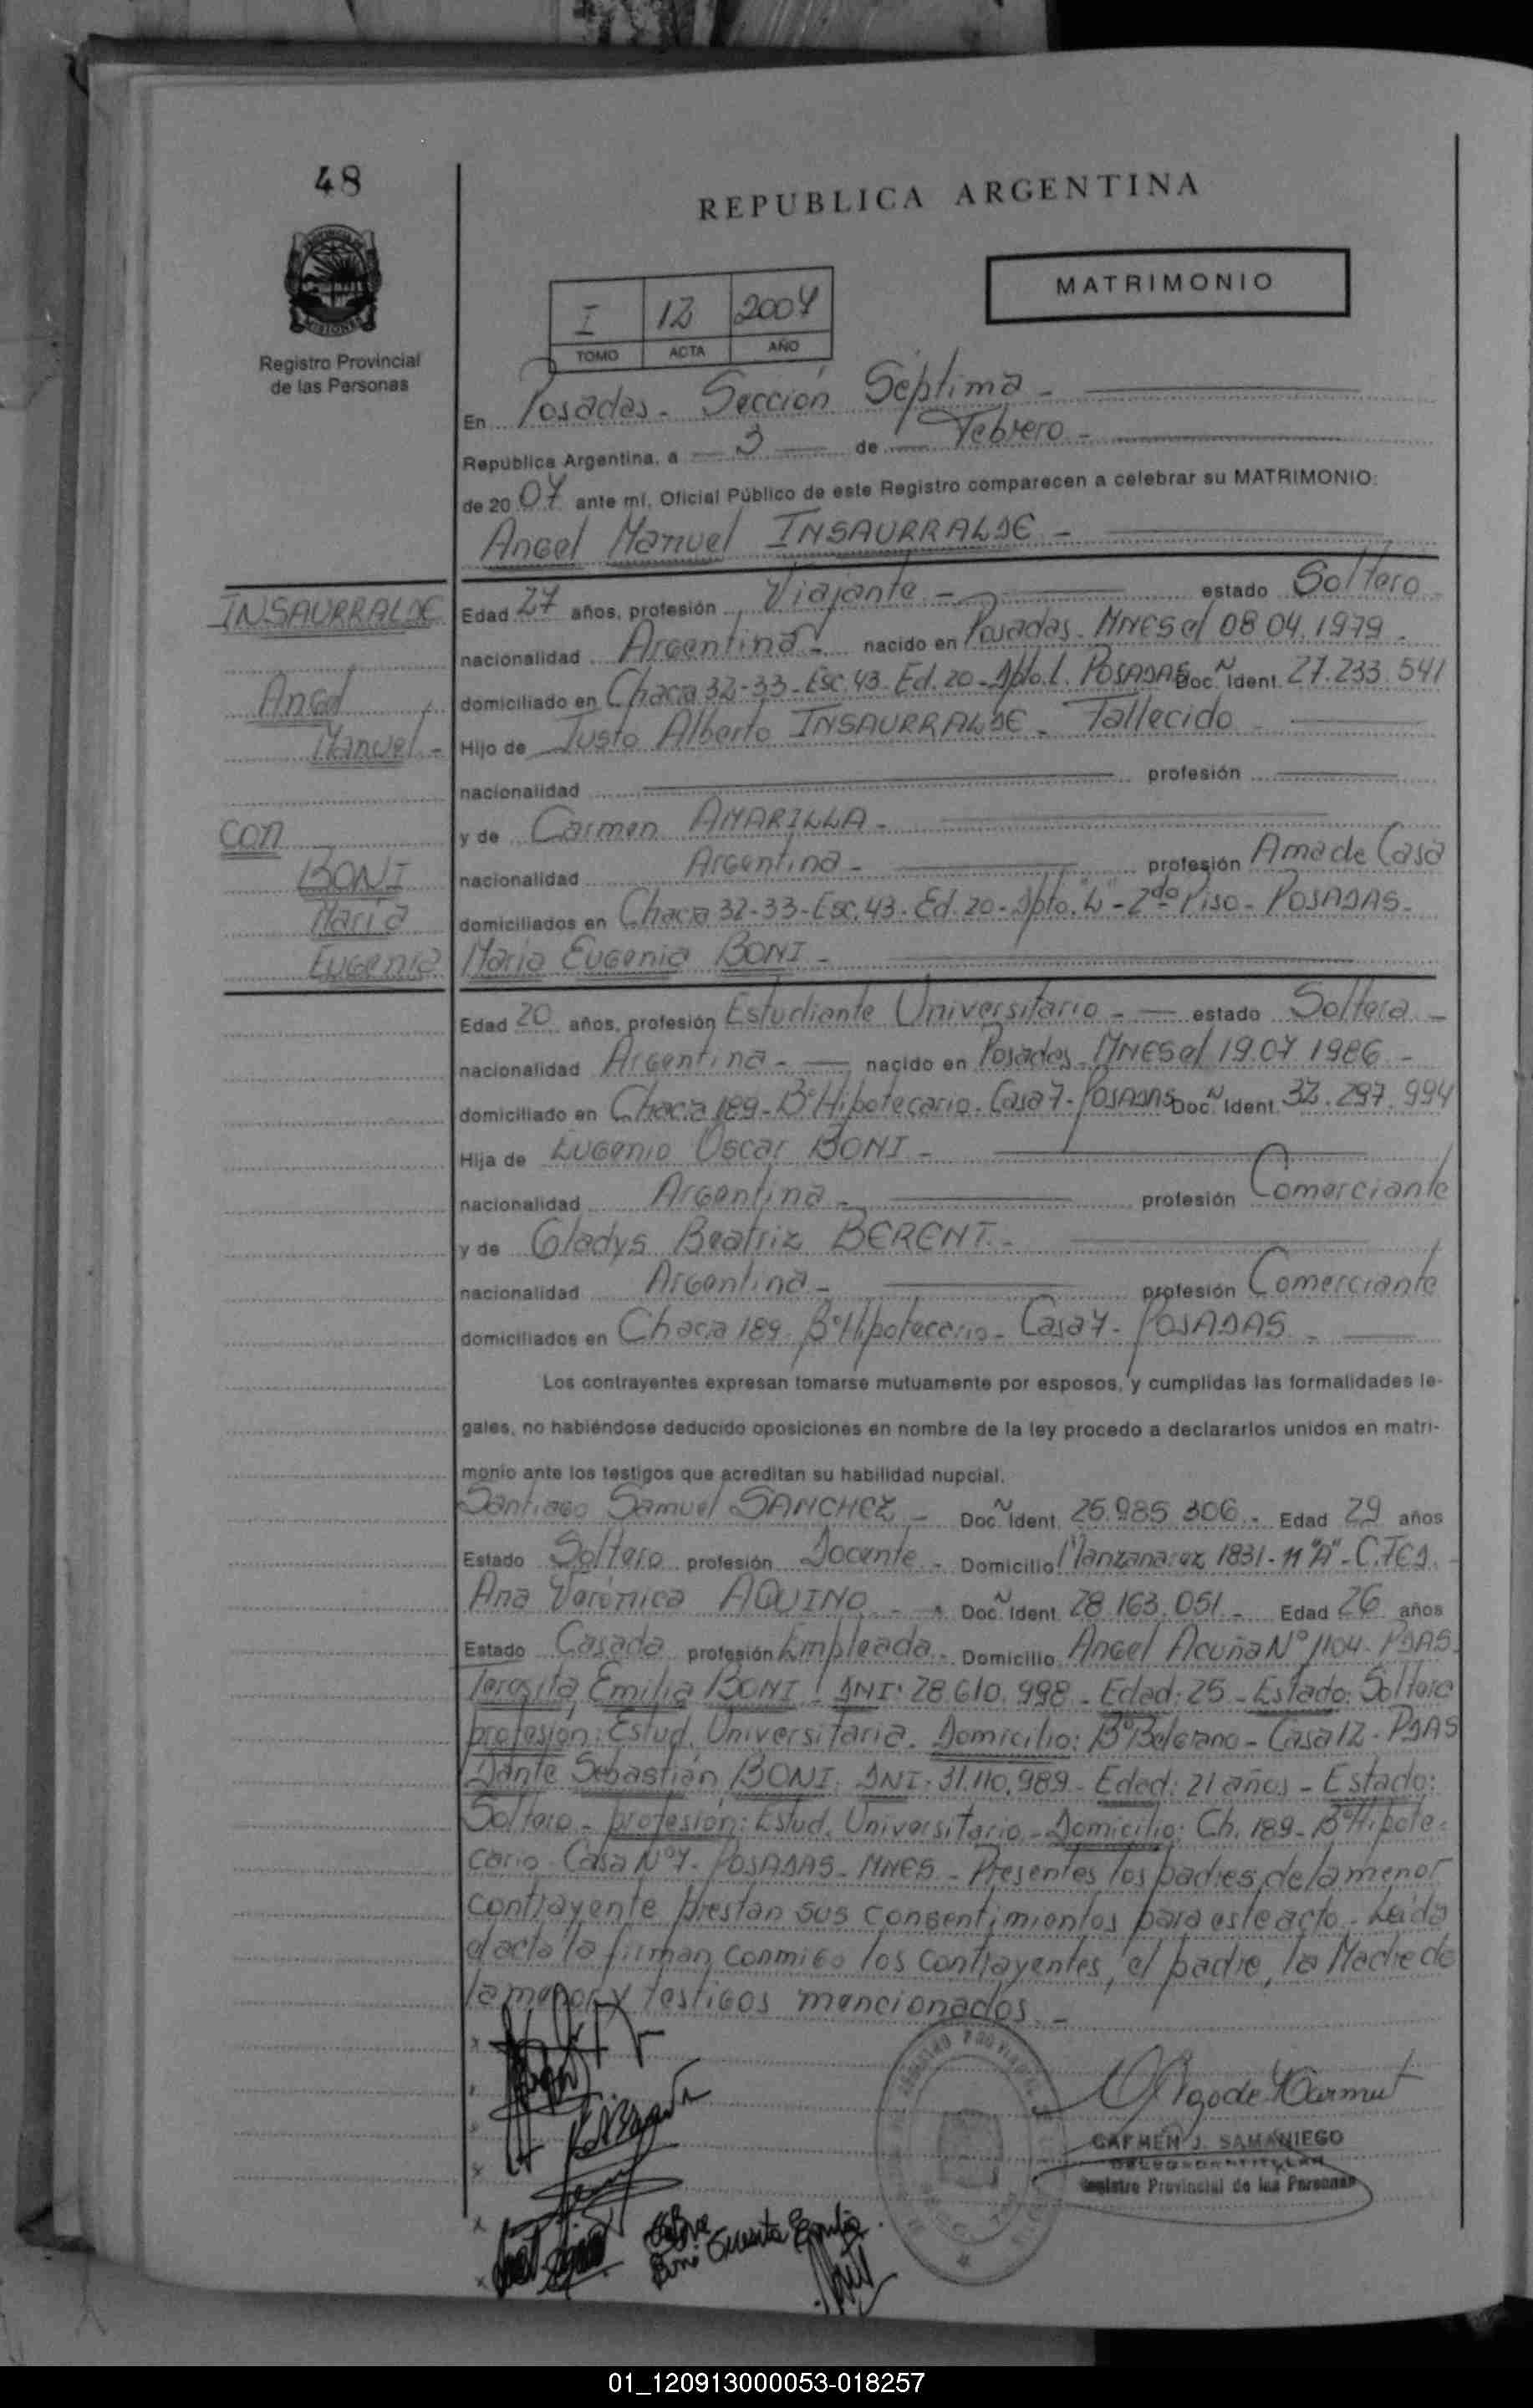 48
REPUBLICA ARGENTINA
MATRIMONIO
PROVINCIA DE
MISIONES
Registro Provincial
de las Personas
I 12 2007
TOMO ACTA AÑO
En Posadas - Sección Séptima -
República Argentina, a 3 de Febrero -
de 20 07 ante mí, Oficial Público de este Registro comparecen a celebrar su MATRIMONIO:
Angel Manuel INSAURRALDE -
INSAURRALDE
Angel
Manuel -
con
BONI
María
Eugenia
Edad 27 años, profesión Viajante - estado Soltero
nacionalidad Argentina - nacido en Posadas - MNES el 08.04.1979 -
domiciliado en Chacra 32-33 - Esc. 43 - Ed. 20 - Dpto. L. POSADAS Doc. Ident. 27.233.541
Hijo de Justo Alberto INSAURRALDE - Fallecido -
nacionalidad profesión
y de Carmen AMARILLA -
nacionalidad Argentina - profesión Ama de Casa
domiciliados en Chacra 32-33 - Esc. 43 - Ed. 20 - Dpto. "L" - 2do Piso - POSADAS -
María Eugenia BONI -
Edad 20 años, profesión Estudiante Universitario - estado Soltera -
nacionalidad Argentina - nacido en Posadas - MNES el 19.07.1986 -
domiciliado en Chacra 189 - Bº Hipotecario - Casa 7 - POSADAS Doc. Ident. 32.297.994
Hija de Eugenio Oscar BONI -
nacionalidad Argentina - profesión Comerciante
y de Gladys Beatriz BERENT -
nacionalidad Argentina - profesión Comerciante
domiciliados en Chacra 189 - Bº Hipotecario - Casa 7 - POSADAS -
Los contrayentes expresan tomarse mutuamente por esposos, y cumplidas las formalidades le-
gales, no habiéndose deducido oposiciones en nombre de la ley procedo a declararlos unidos en matri-
monio ante los testigos que acreditan su habilidad nupcial.
Santiago Samuel SANCHEZ - Doc. Ident. 25.985.306 - Edad 29 años
Estado Soltero profesión Docente - Domicilio Manzanarez 1831 - 11 "A" - C.FED. -
Ana Verónica AQUINO - Doc. Ident. 28.163.051 - Edad 26 años
Estado Casada profesión Empleada - Domicilio Angel Acuña Nº 1104 - PDAS
Teresita Emilia BONI DNI: 28.610.998 - Edad: 25 - Estado: Soltera
profesión: Estud. Universitaria - Domicilio: Bº Belgrano - Casa 12 - PDAS
Dante Sebastián BONI. DNI: 31.110.989 - Edad: 21 años - Estado:
Soltero - profesión: Estud. Universitario - Domicilio: Ch. 189 - Bº Hipote-
cario - Casa Nº 7 - POSADAS - MNES - Presentes los padres de la menor
contrayente prestan sus consentimientos para este acto - Leída
el acta la firman conmigo los contrayentes, el padre, la Madre de
la menor y testigos mencionados -
Boni Teresita Emilia
CARMEN J. SAMANIEGO
Registro Provincial de las Personas
01_120913000053-018257